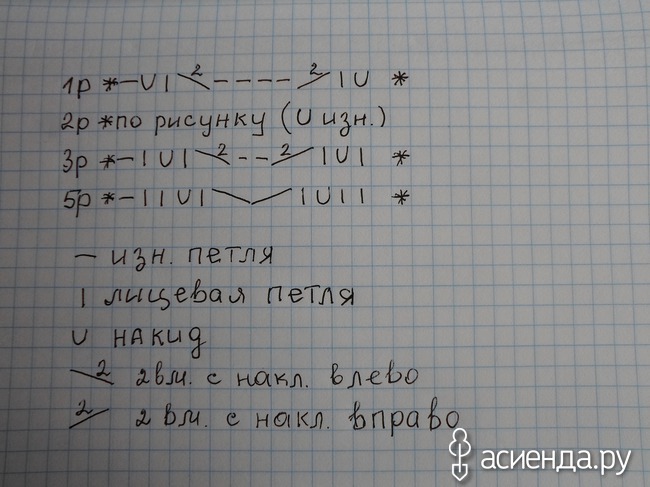 1р *–UI\2––––2/IU *
2р *по рисунку (U изн.)
3р *–IUI\2––2/IUI *
5р *–IIUI\/IUII *
– изн. петля
I лицевая петля
U накид
\2 2 вм. с накл. влево
2/ 2 вм. с накл. вправо
асиенда.ру